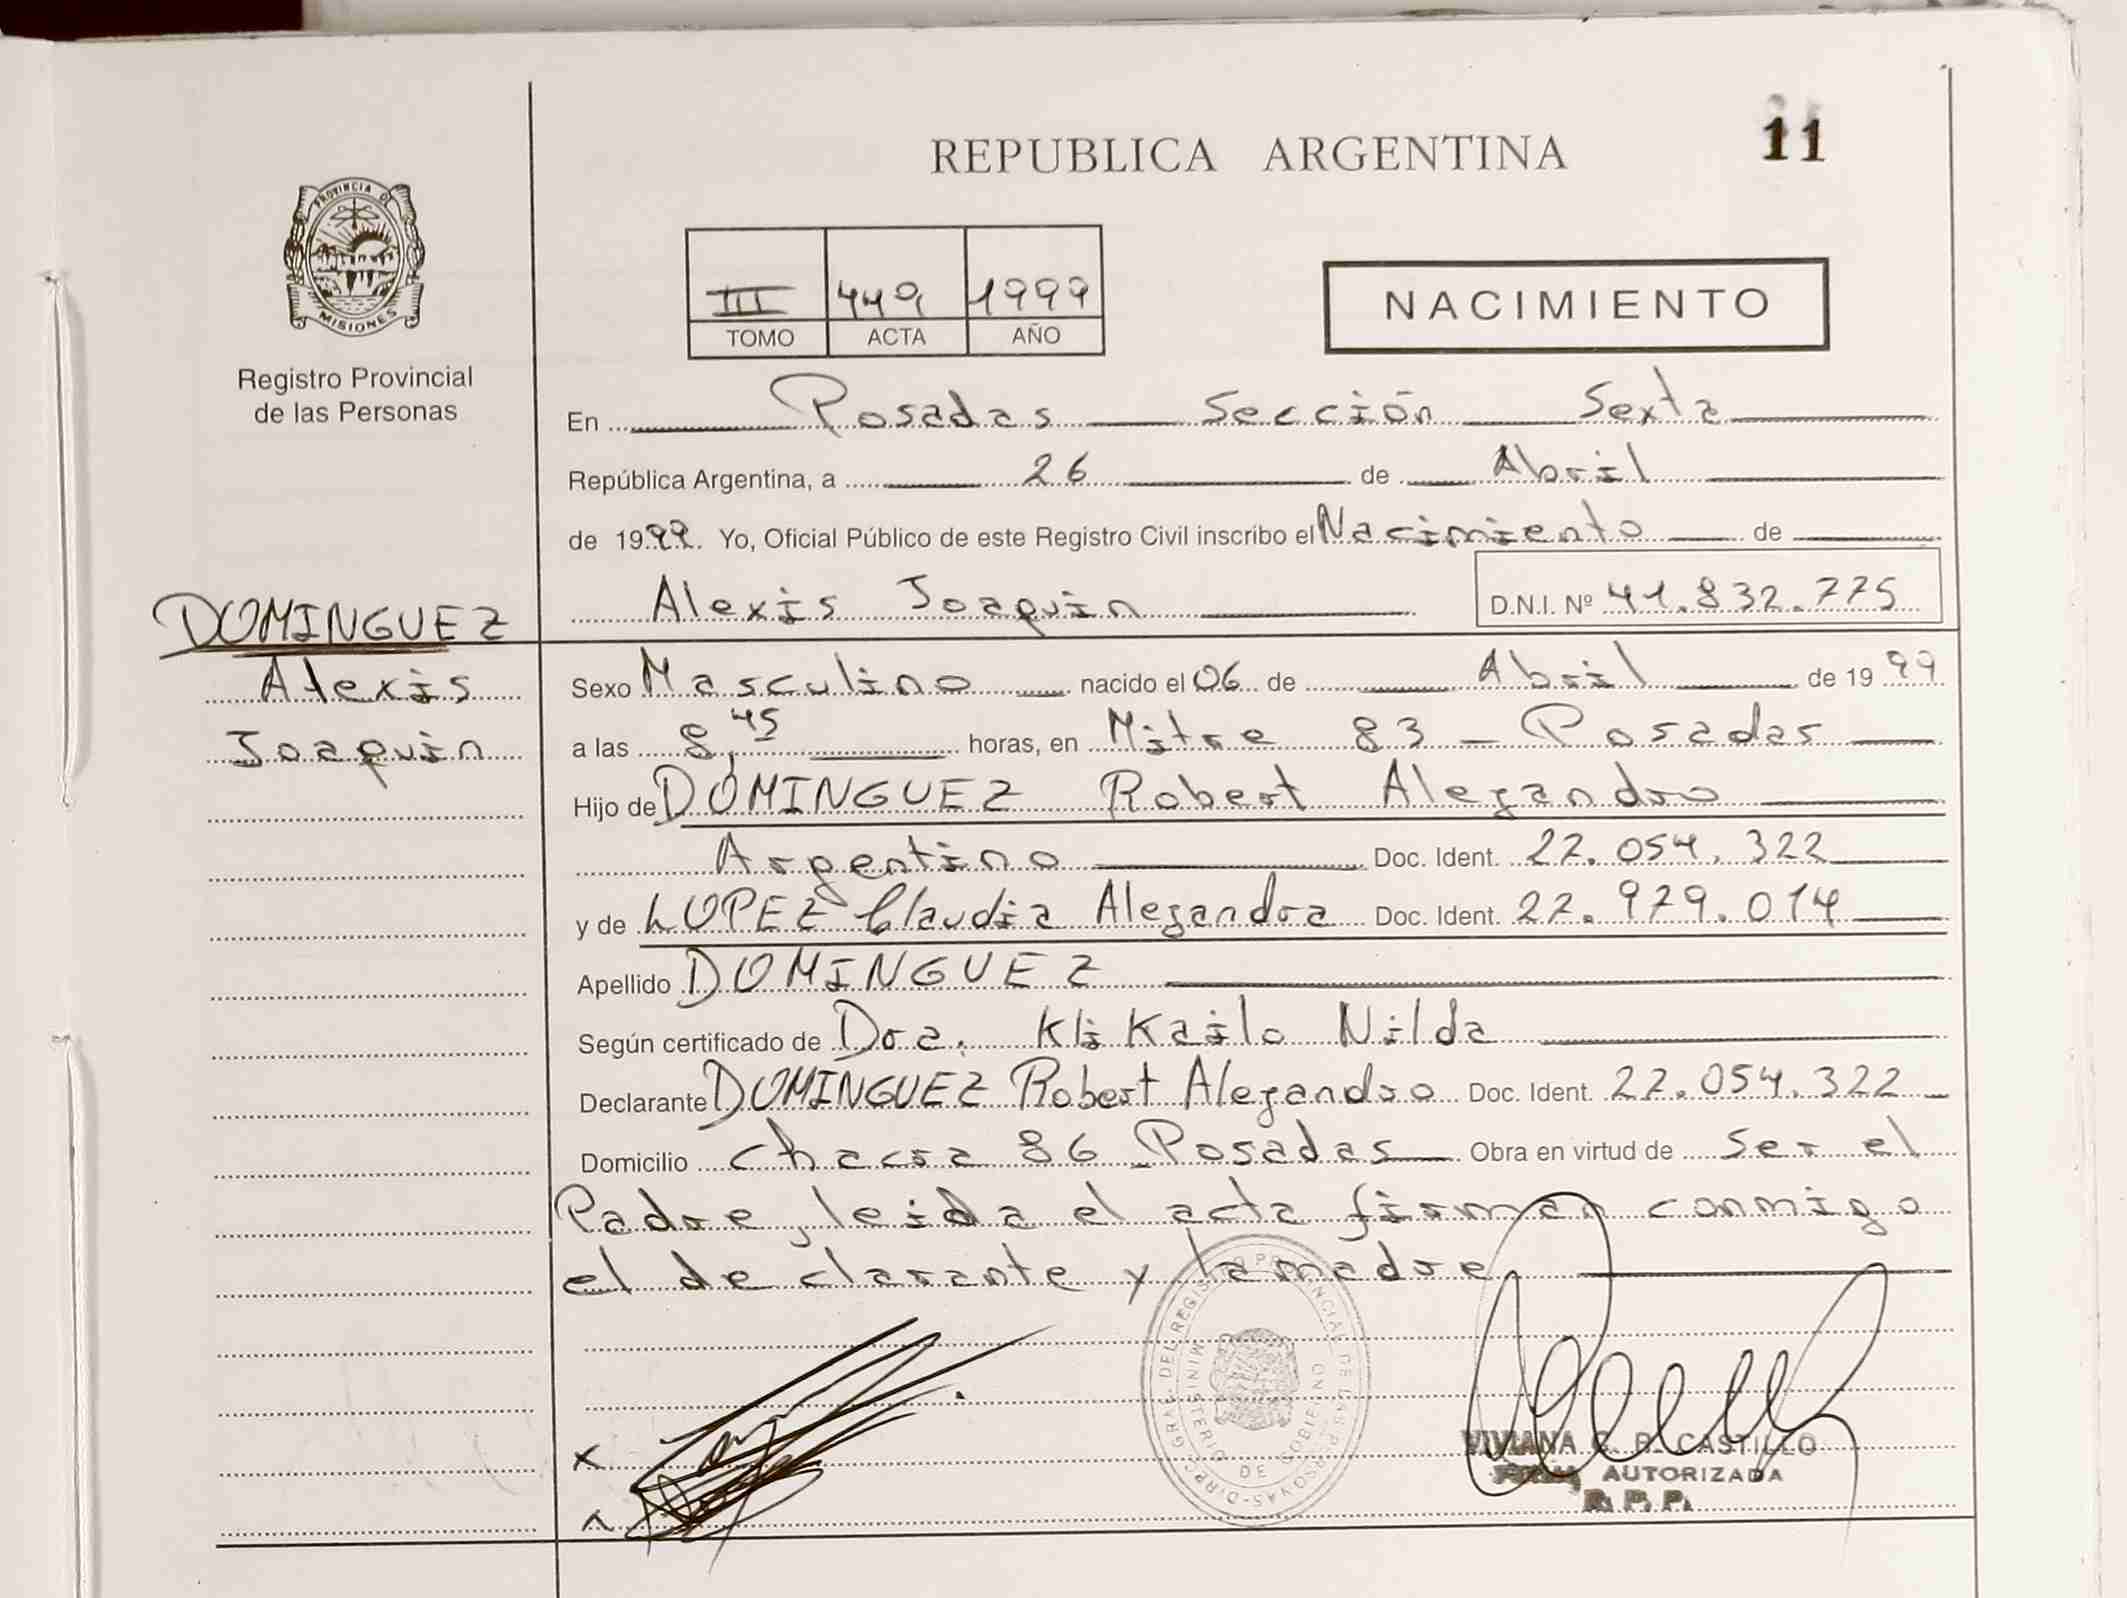 REPUBLICA ARGENTINA
11
PROVINCIA DE
MISIONES
Registro Provincial
de las Personas
III 449 1999
TOMO ACTA AÑO
NACIMIENTO
En Posadas Sección Sexta
República Argentina, a 26 de Abril
de 1999. Yo, Oficial Público de este Registro Civil inscribo el Nacimiento de
Alexis Joaquin D.N.I. Nº 41.832.775
DOMINGUEZ
Alexis
Joaquin
Sexo Masculino nacido el 06 de Abril de 1999
a las 8,45 horas, en Mitre 83 - Posadas
Hijo de DOMINGUEZ Robert Alejandro
Argentino Doc. Ident. 22.054.322
y de LOPEZ Claudia Alejandra Doc. Ident. 22.979.014
Apellido DOMINGUEZ
Según certificado de Dra. Klikailo Nilda
Declarante DOMINGUEZ Robert Alejandro Doc. Ident. 22.054.322
Domicilio chacra 86 Posadas Obra en virtud de ser el
Padre, leida el acta firman conmigo
el declarante y la madre
DEL REGISTRO PROVINCIAL DE LAS PERSONAS
MINISTERIO DE GOBIERNO
x
VIVIANA CASTILLO
AUTORIZADA
R. P. P.